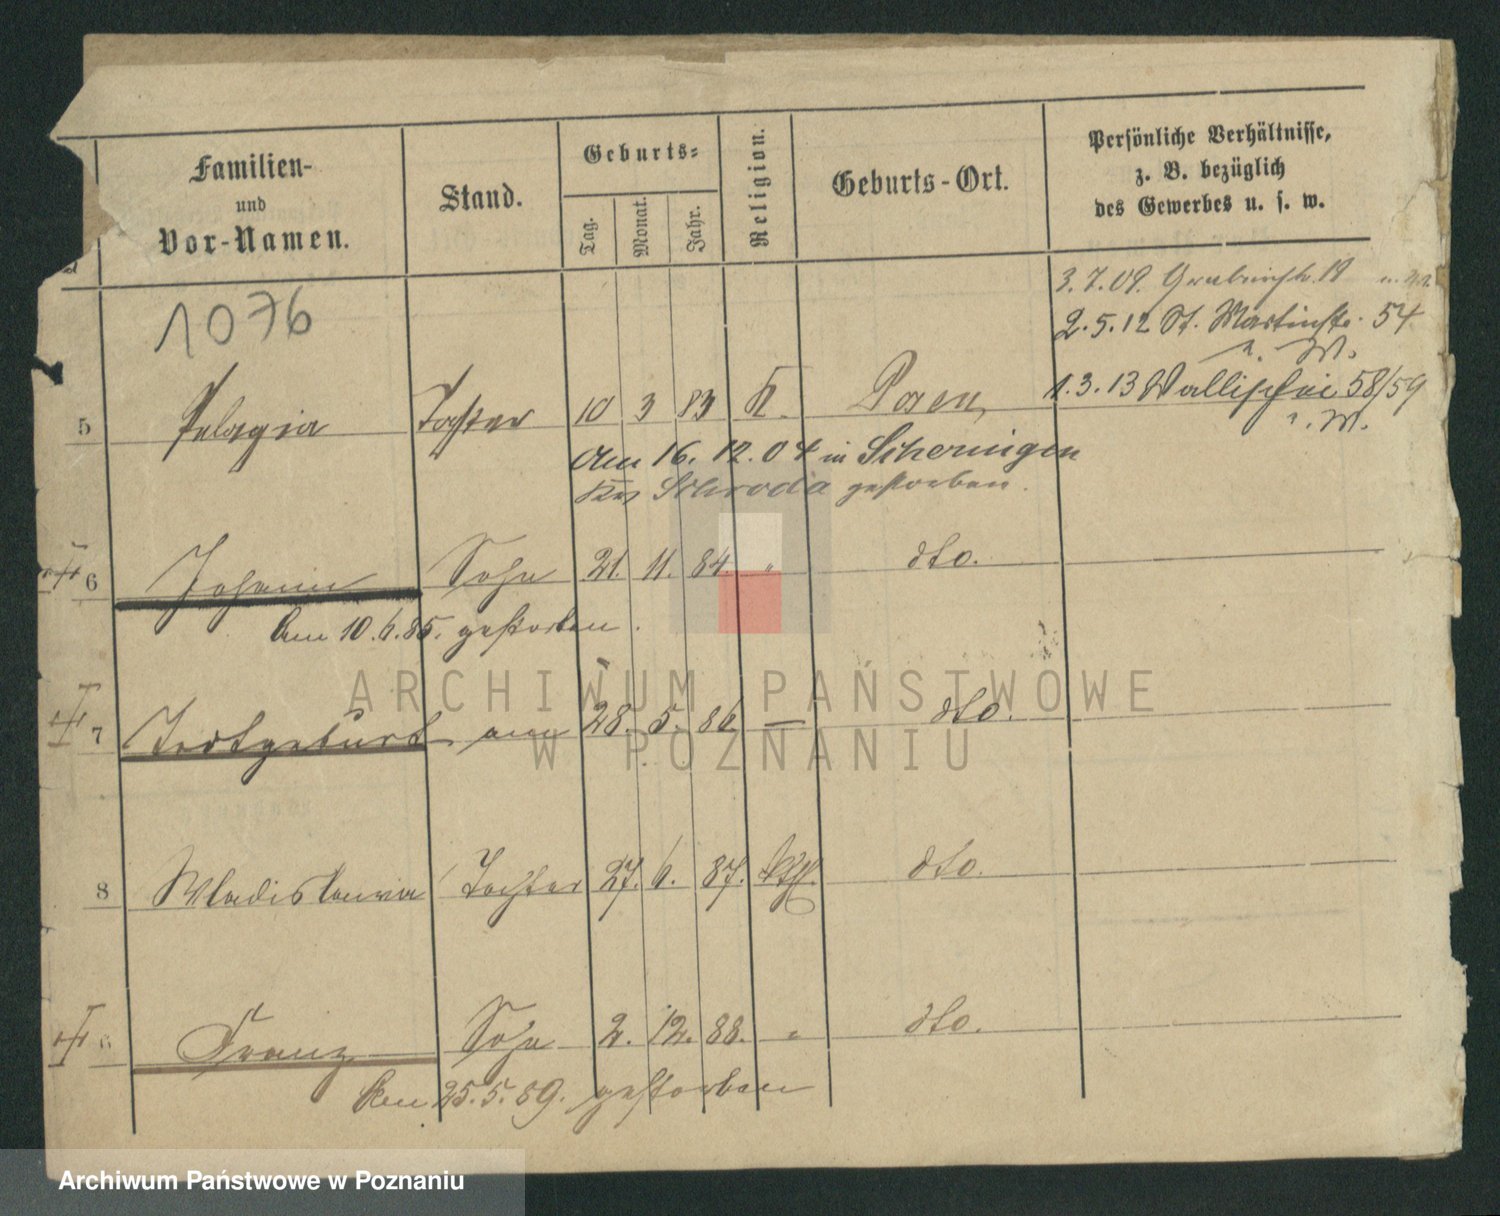 Familien-
und
Vor-Namen.
Stand.
Geburts-
Tag.
Monat.
Jahr.
Religion.
Geburts-Ort.
Persönliche Verhältnisse,
z. B. bezüglich
des Gewerbes u. s. w.
1076
3.7.09. 19
2.5.12 St. Martinstr. 54
M.
1.3.13 Wallischei 58/59
M.
5 Pelagia Tochter 10 3 83 K. Posen
Am 16.12.04 in
Krs Schroda gestorben.
6 Johann Sohn 21. 11. 84. " dto.
Am 10.6.85. gestorben.
7 Todtgeburt am 28. 5. 86. — dto.
8 Wladislawa Tochter 27. 6. 87. Kth. dto.
Franz Sohn 2. 12. 88. " dto.
Am 25.5.89. gestorben
ARCHIWUM PAŃSTWOWE
W POZNANIU
Archiwum Państwowe w Poznaniu